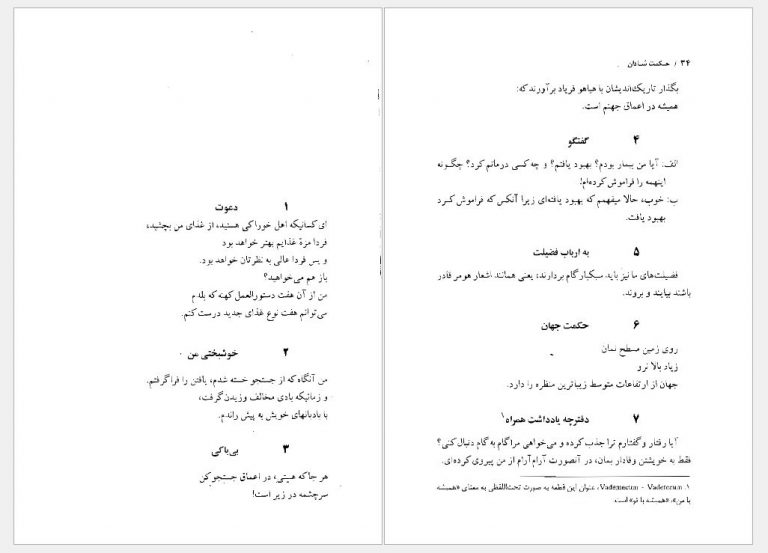 ۱ دعوت
ای کسانیکه اهل خوراکی هستید، از غذای من بچشید،
فردا مزهٔ غذایم بهتر خواهد بود
و پس فردا عالی به نظرتان خواهد بود.
باز هم می‌خواهید؟
من از آن هفت دستورالعمل کهنه که بلدم
می‌توانم هفت نوع غذای جدید درست کنم.
۲ خوشبختی من
من آنگاه که از جستجو خسته شدم، یافتن را فراگرفتم.
و زمانیکه بادی مخالف وزیدن گرفت،
با بادبانهای خویش به پیش راندم.
۳ بی‌باکی
هر جا که هستی، در اعماق جستجو کن
سرچشمه در زیر است!
۳۴ / حکمت شادان
بگذار تاریک‌اندیشان با هیاهو فریاد برآورند که:
همیشه در اعماق جهنم است.
۴ گفتگو
الف: آیا من بیمار بودم؟ بهبود یافتم؟ و چه کسی درمانم کرد؟ چگونه
اینهمه را فراموش کرده‌ام!
ب: خوب، حالا میفهمم که بهبود یافته‌ای زیرا آنکس که فراموش کرد
بهبود یافت.
۵ به ارباب فضیلت
فضیلت‌های ما نیز باید سبکبار گام بردارند، یعنی همانند اشعار هومر قادر
باشند بیایند و بروند.
۶ حکمت جهان
روی زمین مسطح نمان
زیاد بالا نرو
جهان از ارتفاعات متوسط زیباترین منظره را دارد.
۷ دفترچه یادداشت همراه۱
آیا رفتار و گفتارم ترا جذب کرده و می‌خواهی مرا گام به گام دنبال کنی؟
فقط به خویشتن وفادار بمان، در آنصورت آرام آرام از من پیروی کرده‌ای.
۱. Vademecum - Vadetecum، عنوان این قطعه به صورت تحت‌اللفظی به معنای «همیشه
با من»، «همیشه با تو» است.